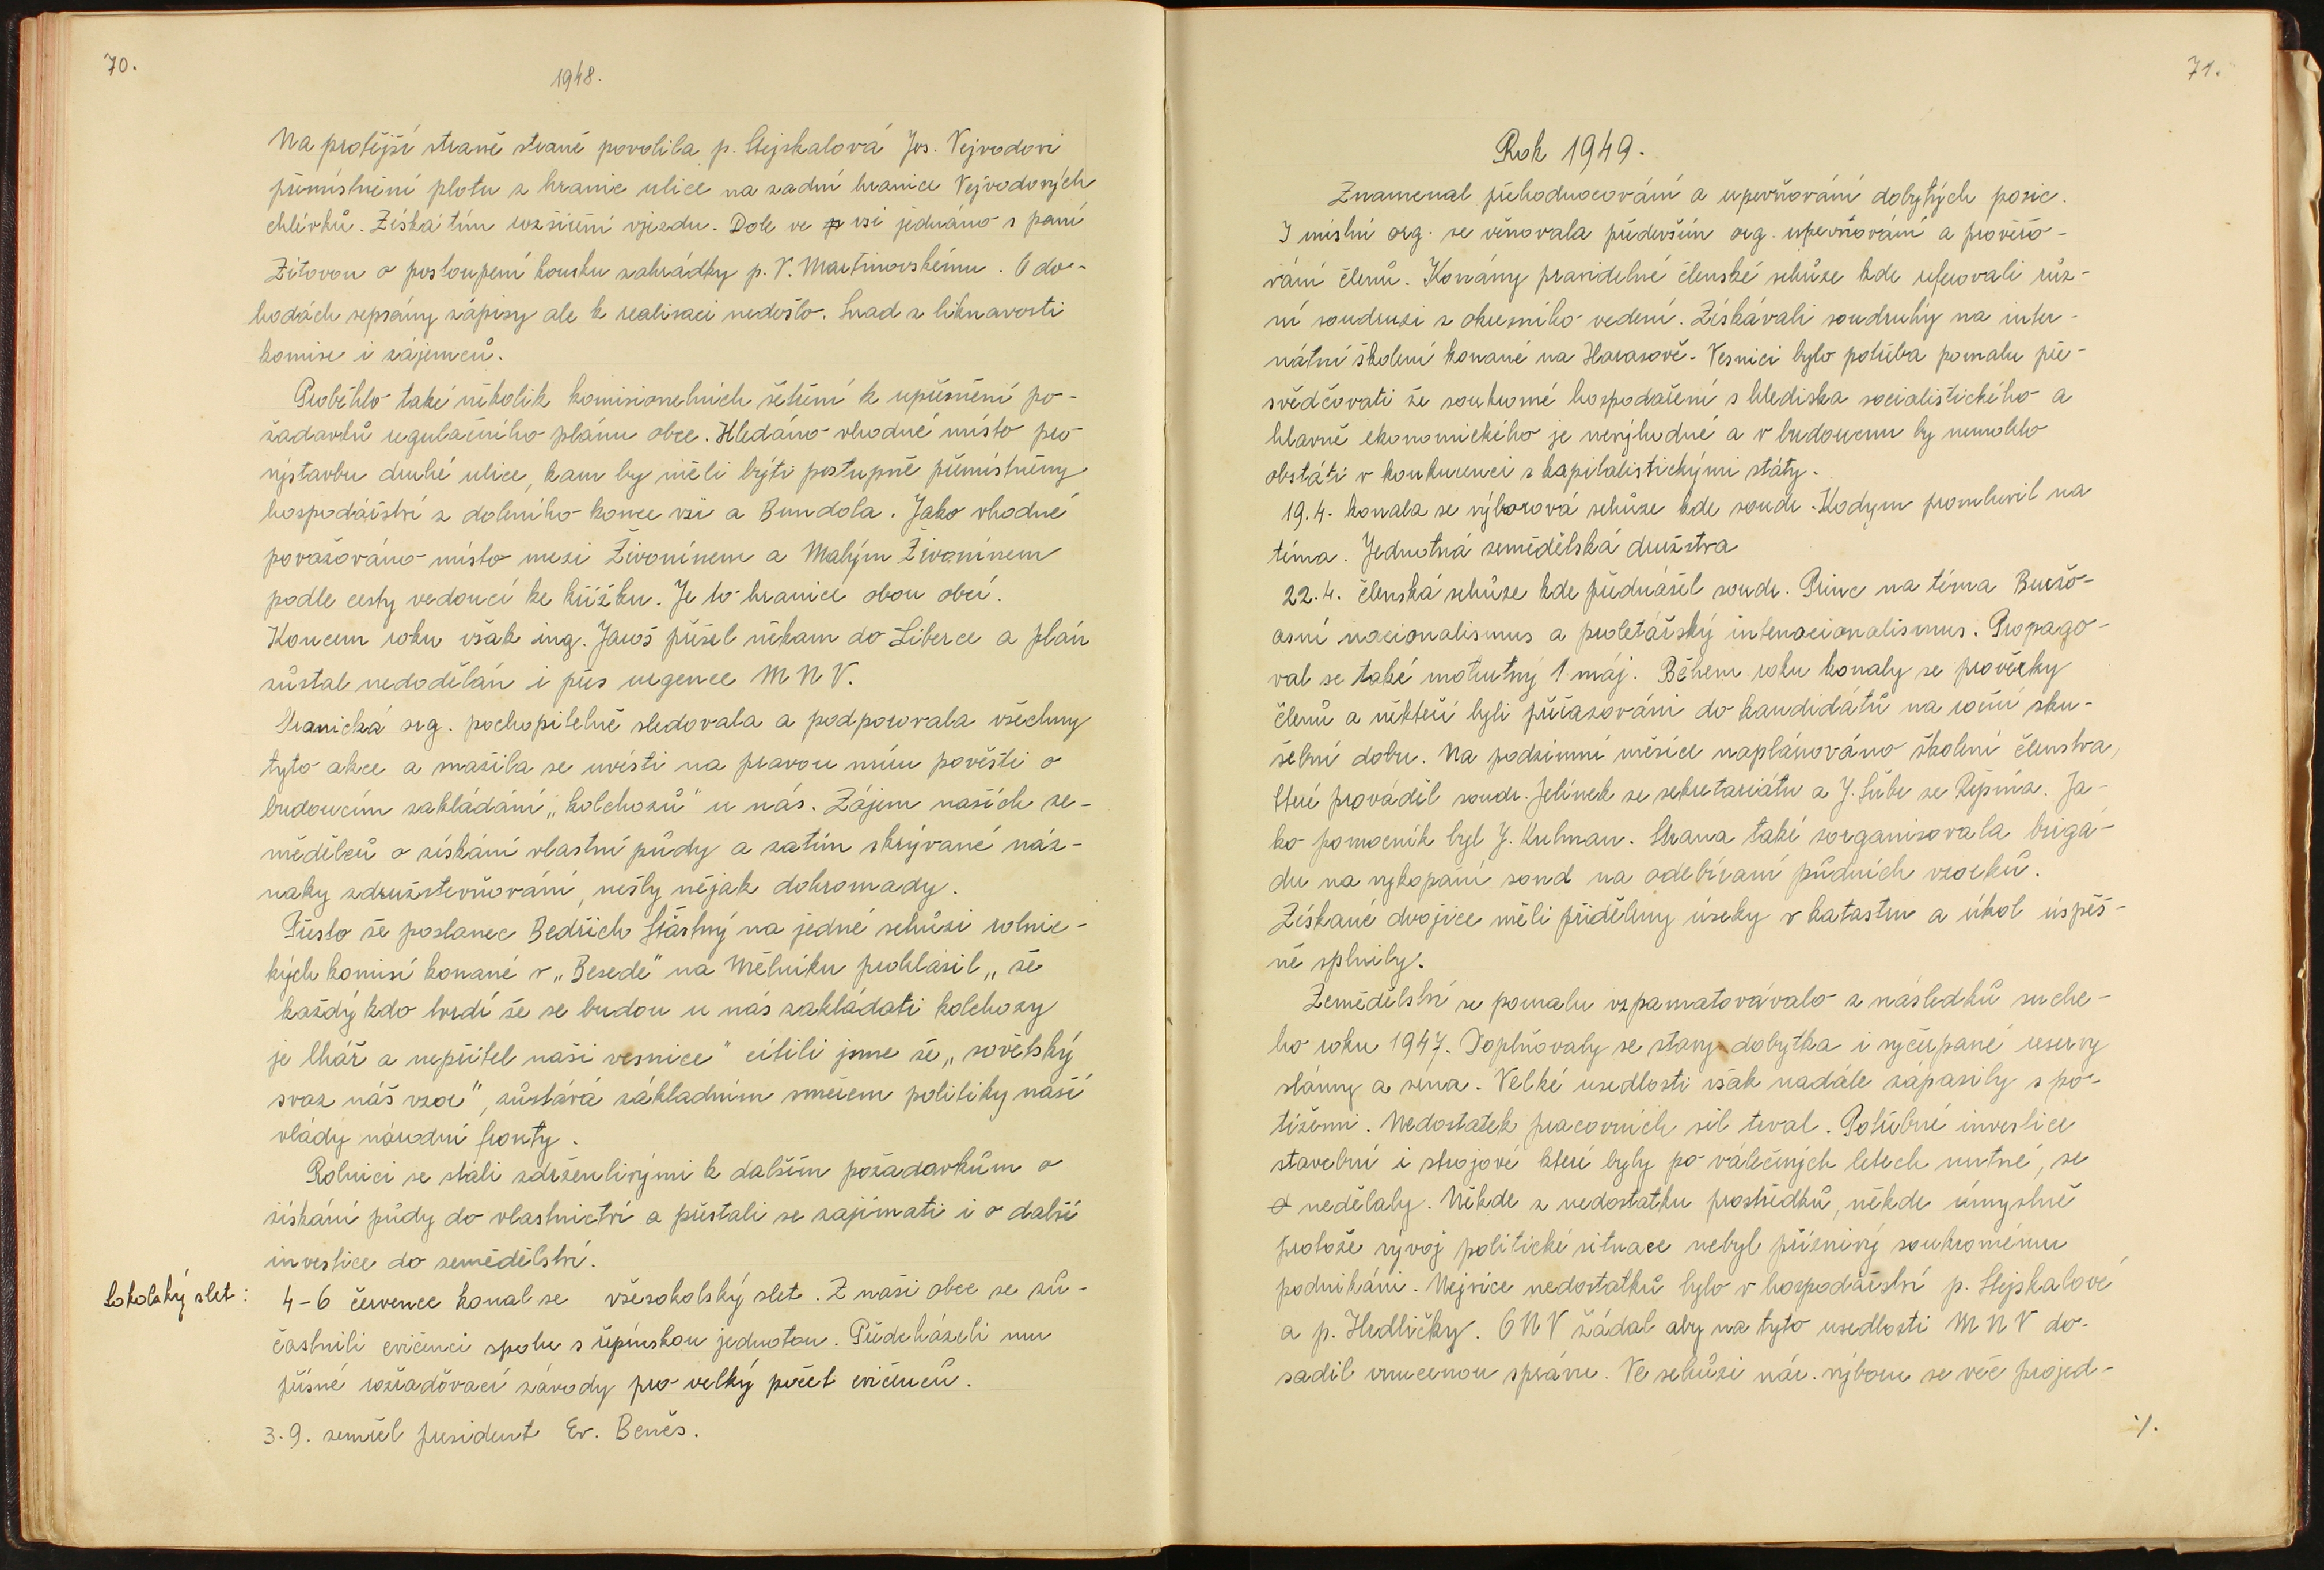 70.
1948.
Na protější straně straně povolila p. Stejskalová Jos. Vejvodovi
přemístnění plotu z hranic ulice na zadní hranice Vejvodových
chlívků. Získá tím rozšíření vjezdu. Dole ve vsi jednáno s paní
Zítovou o postoupení kousku zahrádky p. V. Martinovskému. O do-
hodách sepsány zápisy ale k realisaci nedošlo. Snad z liknavosti
komise i zájemců.
Proběhlo také několik komisionelních šetření k upřesnění po-
žadavků regulačního plánu obce. Hledáno vhodné místo pro
výstavbu druhé ulice, kam by měli býti postupně přemístněny
hospodářství z dolního konce vsi a Bundola. Jako vhodné
považováno místo mezi Živonínem a Malým Živonínem
podle cesty vedoucí ke křížku. Je to hranice obou obcí.
Koncem roku však ing. Jaroš přešel někam do Liberce a plán
zůstal nedodělán i přes urgence M N V.
Stranická org. pochopitelně sledovala a podporovala všechny
tyto akce a snažila se uvésti na pravou míru pověsti o
budoucím zakládání „kolchozů" u nás. Zájem našich ze-
mědělců o získání vlastní půdy a zatím skrývané náz-
naky združstevňování, nešly nějak dohromady.
Přesto že poslanec Bedřich Šťastný na jedné schůzi rolnic-
kých komisí konané v „Besedě" na Mělníku prohlásil „že
každý kdo tvrdí že se budou u nás zakládati kolchozy
je lhář a nepřítel naší vesnice" cítili jsme že „sovětský
svaz náš vzor", zůstává základním směrem politiky naší
vlády národní fronty.
Rolníci se stáli zdrženlivými k dalším požadavkům o
získání půdy do vlastnictví a přestali se zajímati i o další
investice do zemědělství.
Sokolský slet: 4-6 července konal se všesokolský slet. Z naší obce se zú-
častnili cvičenci spolu s řepínskou jednotou. Předcházeli mu
přísné rozřaďovací závody pro velký počet cvičenců.
3.9. zemřel president Ev. Beneš.
71.
Rok 1949.
Znamenal přehodnocování a upevňování dobytých posic.
I místní org. se věnovala především org. upevňování a prověřo-
vání členů. Konány pravidelné členské schůze kde referovali růz-
ní soudruzi z okresního vedení. Získávali soudruhy na inter-
nátní školení konané na Harasově. Vesnici bylo potřeba pomalu pře-
svědčovati že soukromé hospodaření s hlediska socialistického a
hlavně ekonomického je nevýhodné a v budoucnu by nemohlo
obstáti v konkurenci s kapitalistickými státy.
19.4. konala se výborová schůze kde soudr. Kodym promluvil na
téma. Jednotná zemědělská družstva
22.4. členská schůze kde přednášel soudr. Princ na téma Buržo-
asní nacionalismus a proletářský internacionalismus. Propago-
val se také mohutný 1 máj. Během roku konaly se prověrky
členů a někteří byli přeřazováni do kandidátů na roční zku-
šební dobu. Na podzimní měsíce naplánováno školení členstva,
které prováděl soudr. Jelínek ze sekretariátu a J. Šubr ze Řepína. Ja-
ko pomocník byl J. Kulman. Strana také zorganisovala brigá-
du na vykopání sond na odebívaní půdních vzorků.
Získané dvojice měli přiděleny úseky v katastru a úkol úspěš-
ně splnily.
Zemědělství se pomalu vzpamatovávalo z následků suche-
ho roku 1947. Doplňovaly se stavy dobytka i vyčerpané reservy
slámy a sena. Velké usedlosti však nadále zápasily s po-
tížemi. Nedostatek pracovních sil trval. Potřebné investice
stavební i strojové které byly po válečných letech nutné, se
nedělaly. Někde z nedostatku prostředků, někde úmyslně
protože vývoj politické situace nebyl příznivý soukromému
podnikání. Nejvíce nedostatků bylo v hospodářství p. Stejskalové
a p. Hrdličky. O N V žádal aby na tyto usedlosti M N V do-
sadil vnucenou správu. Ve schůzi nár. výboru se věc projed-
·/.